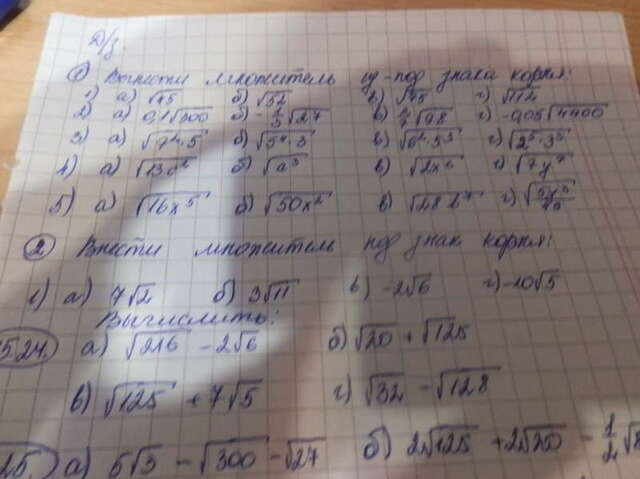 Д/з.
① Вынести множитель из-под знака корня:
1) а) √75 б) √52 в) √48 г) √112
2) а) 0,1√300 б) -1/3√27 в) 1/7√98 г) -0,05√4400
3) а) б) √(5⁴·3) в) √(6²·5³) г) √(2⁵·3³)
4) а) √(13c²) б) √(a³) в) √(2x⁶) г) √(7y⁷)
5) а) √(16x⁵) б) √(50x²) в) г)
② Внести множитель под знак корня:
1) а) 7√2 б) 3√11 в) -2√6 г) -10√5
Вычислить:
5.24. а) √216 - 2√6 б) √20 + √125
в) √125 + 7√5 г) √32 - √128
25. а) 5√3 - √300 - √27 б) 2√125 + 2√20 - 1/2√8